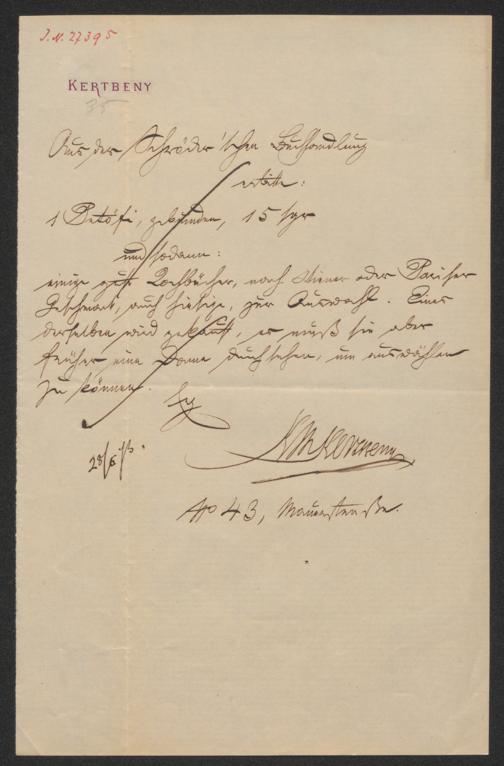 J.N. 27395
KERTBENY
35
Aus der Schröder'schen Buchhandlung
erbitte:
1 Petöfi, gebunden, 15 sgr
und sodann:
einige gute Kochbücher, nach Wiener oder Pariser
Geschmack, auch hiesige, zur Auswahl. Eines
derselben wird gekauft, es muß sie aber
früher eine Dame durchsehen, um auswählen
zu können.
28/6
KMKertbeny
No 43, Mauerstraße.